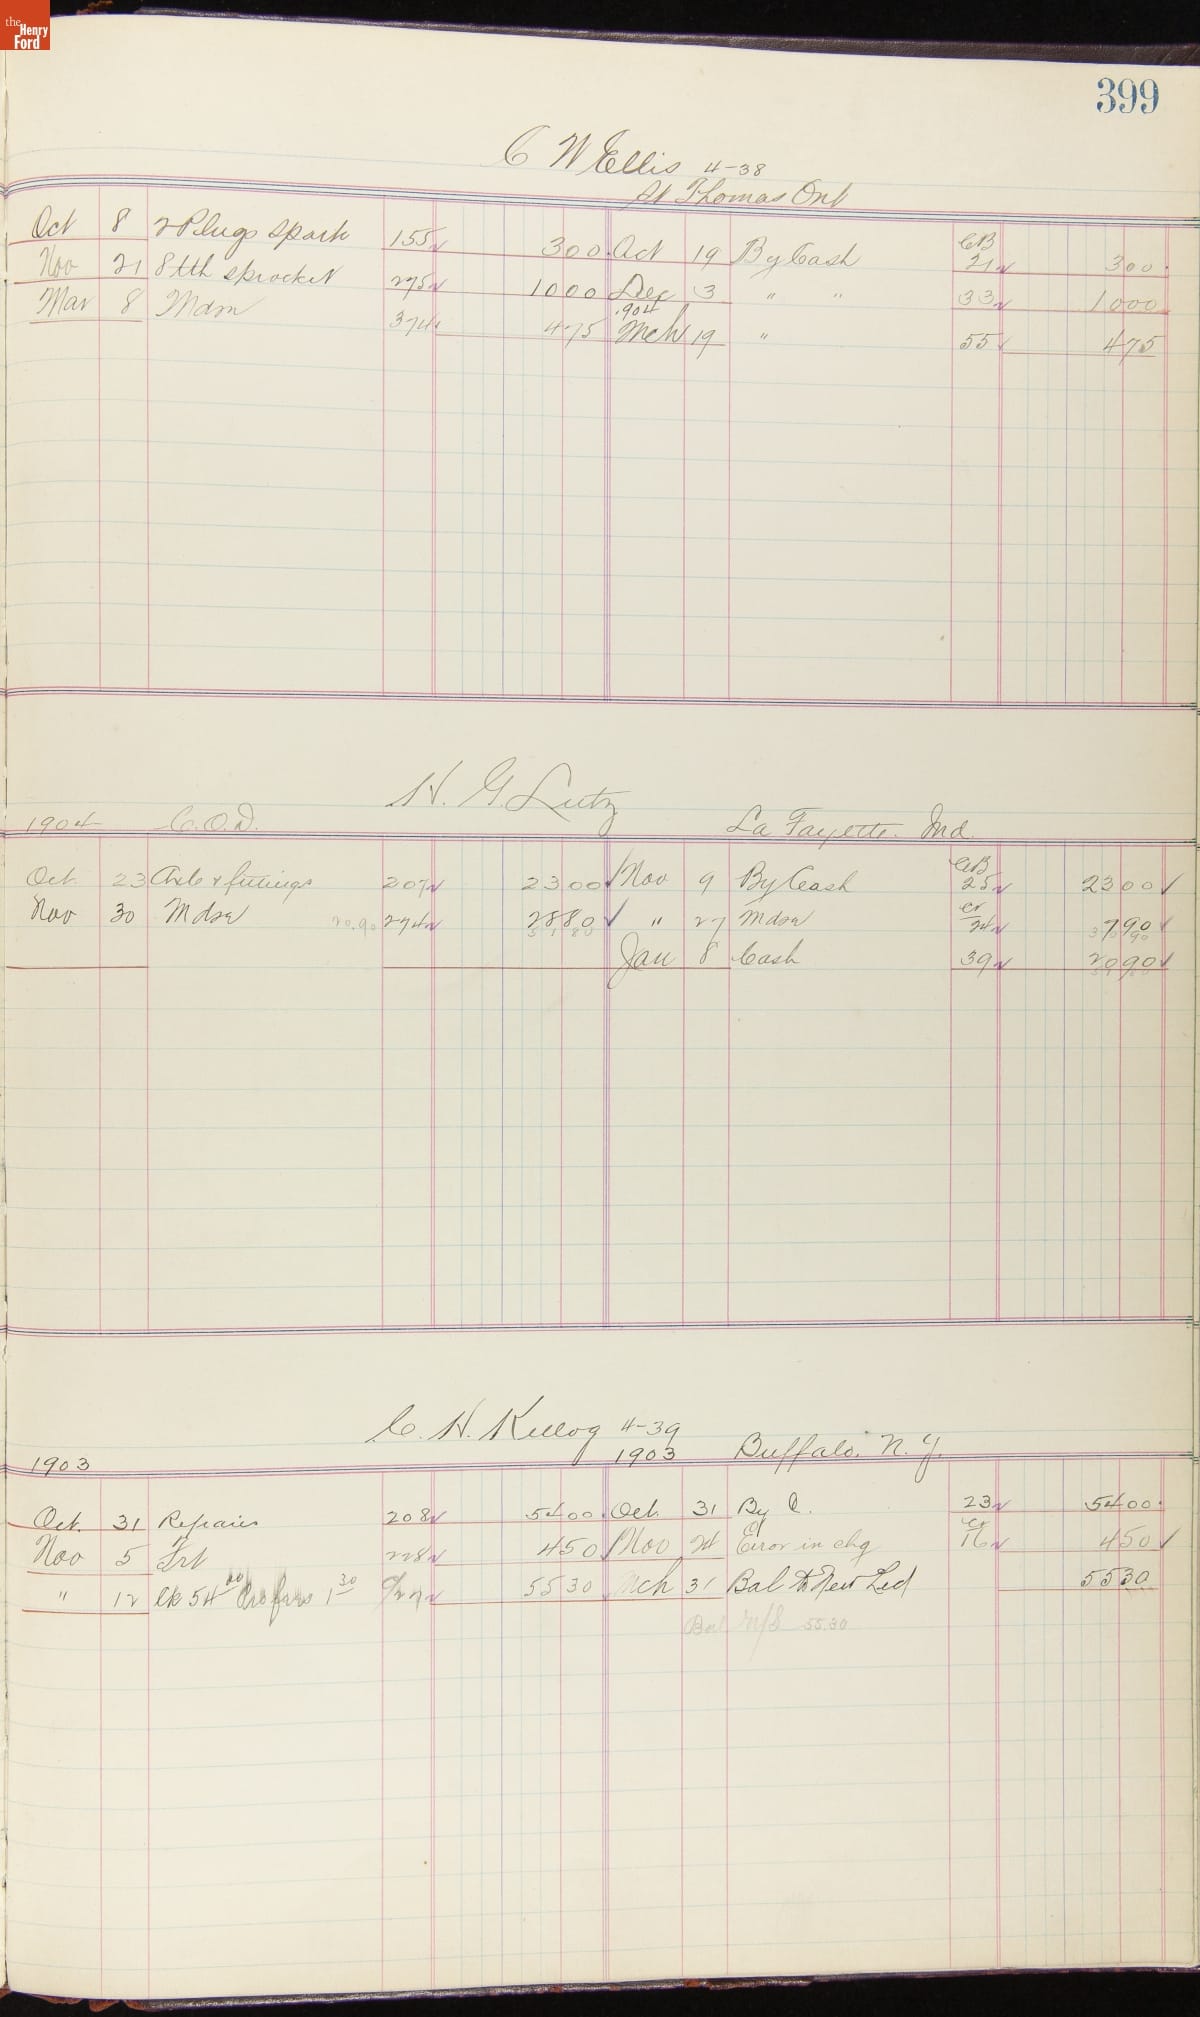 the Henry Ford
399
C W Ellis 4-38
St Thomas Ont
Oct 8 2 Plugs Spark 155 300 Oct 19 By Cash CB 21 300
Nov 21 8 tth sprocket 275 1000 Dec 3 " " 33 1000
1904
Mar 8 Mdse 374 475 Mch 19 " 55 475
H. G. Lutz
1904 C.O.D. La Fayette. Ind.
Oct. 23 Axle & fittings 207 2300 Nov 9 By Cash CB 25 2300
Nov 30 Mdse 20.90 274 2880 " 27 Mdse Cr 24 790
51 80
Jan 8 Cash 39 2090
C. H. Kellog 4-39
1903 1903 Buffalo. N. Y.
Oct. 31 Repairs 208 5400 Oct. 31 By C. 23 5400
Nov 5 Frt 228 450 Nov 24 Error in chg Cr 16 450
" 12 Ck 54 00 1 30 5530 Mch 31 Bal to New Led 5530
Bal 55.30